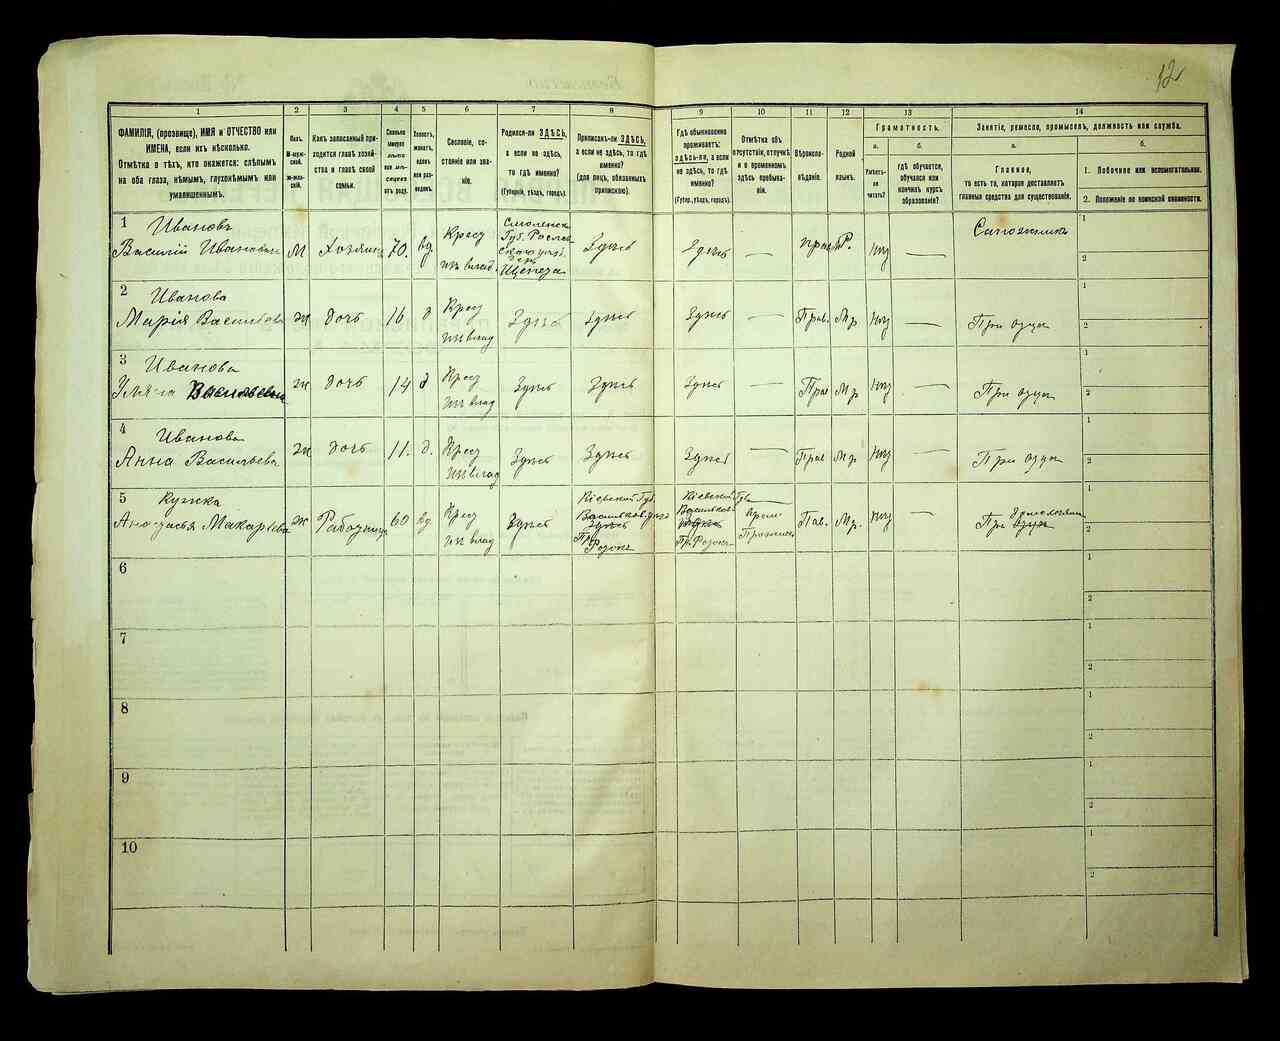 12
1
2
3
4
5
6
7
8
9
10
11
12
13
14
ФАМИЛІЯ, (прозвище), ИМЯ и ОТЧЕСТВО или
ИМЕНА, если ихъ нѣсколько.
Отмѣтка о тѣхъ, кто окажется: слѣпымъ
на оба глаза, нѣмымъ, глухонѣмымъ или
умалишеннымъ.
Полъ.
М-мужской.
ж-женскій.
Какъ записанный приходится
главѣ хозяйства и главѣ своей
семьи.
Сколько
минуло
лѣтъ
или мѣсяцевъ
отъ роду.
Холостъ,
женатъ,
вдовъ
или разведенъ.
Сословіе, состояніе
или званіе.
Родился-ли ЗДѢСЬ,
а если не здѣсь,
то гдѣ именно?
(Губернія, уѣздъ, городъ).
Приписанъ-ли ЗДѢСЬ,
а если не здѣсь, то гдѣ
именно?
(для лицъ, обязанныхъ
припискою).
Гдѣ обыкновенно
проживаетъ:
здѣсь-ли, а если
не здѣсь, то гдѣ
именно?
(Губер., уѣздъ, городъ).
Отмѣтка объ
отсутствіи, отлучкѣ
и о временномъ
здѣсь пребываніи.
Вѣроисповѣданіе.
Родной
языкъ.
Грамотность.
а.
Умѣетъ-ли
читать?
б.
гдѣ обучается,
обучался или
кончилъ курсъ
образованія?
Занятіе, ремесло, промыселъ, должность или служба.
а.
Главное,
то есть то, которое доставляетъ
главныя средства для существованія.
б.
1. Побочное или вспомогательное.
2. Положеніе по воинской повинности.
1 Ивановъ
Василій Ивановичъ М Хозяинъ 70. вд. Крест Смоленск Губ. Здѣсь Здѣсь — Прав Р. нѣт — Сапожникъ
2 Иванова
Марія Васильева ж дочь 16 д Крест Здѣсь Здѣсь Здѣсь — Прав. Мр нѣт — При отцѣ
3 Иванова
Уліяна Васильевна ж дочь 14 д Крест Здѣсь Здѣсь Здѣсь — Прав Мр нѣт — При отцѣ
4 Иванова
Анна Васильева ж дочь 11. д. Крест Здѣсь Здѣсь Здѣсь — Прав Мр нѣт — При отцѣ
5
Анастасья Макарьева ж Работница 60 вд Крест Здѣсь Кіевской Губ. Кіевской Губ. Мр. нѣт —
6
7
8
9
10